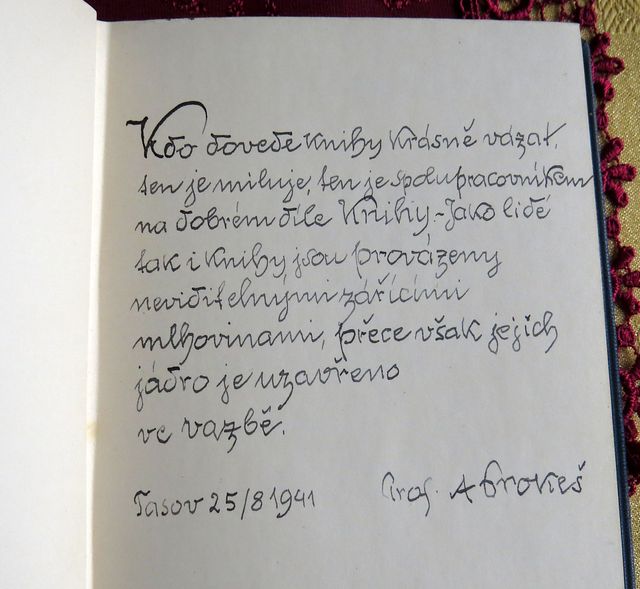 Kdo dovede knihy krásně vázat,
ten je miluje, ten je spolupracovníkem
na dobrém díle knihy. Jako lidé
tak i knihy jsou provázeny
neviditelnými zářícími
mlhovinami, přece však jejich
jádro je uzavřeno
ve vazbě.
Tasov 25/8 1941 Prof. A Prokeš